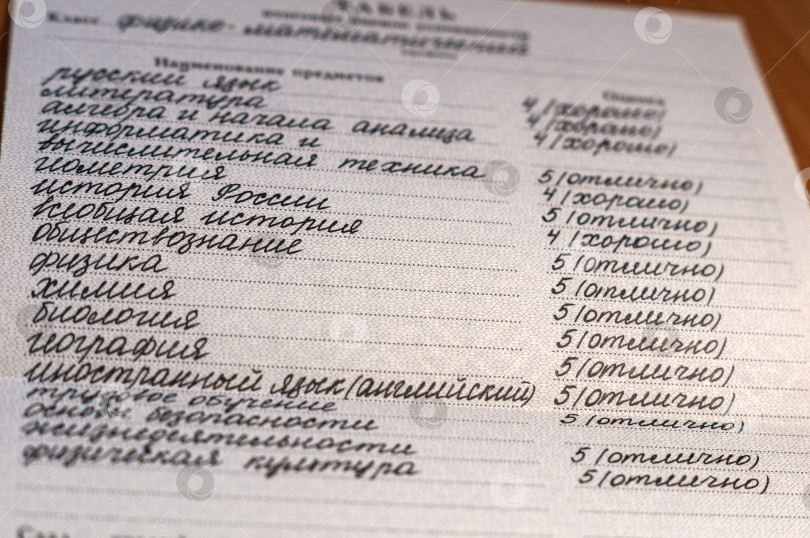 ТАБЕЛЬ
Класс физико-математический
Наименование предметов Оценка
русский язык 4 (хорошо)
литература 4 (хорошо)
алгебра и начала анализа 4 (хорошо)
информатика и
вычислительная техника 5 (отлично)
геометрия 4 (хорошо)
история России 5 (отлично)
всеобщая история 4 (хорошо)
обществознание 5 (отлично)
физика 5 (отлично)
химия 5 (отлично)
биология 5 (отлично)
география 5 (отлично)
иностранный язык (английский) 5 (отлично)
трудовое обучение 5 (отлично)
основы безопасности
жизнедеятельности 5 (отлично)
физическая культура 5 (отлично)